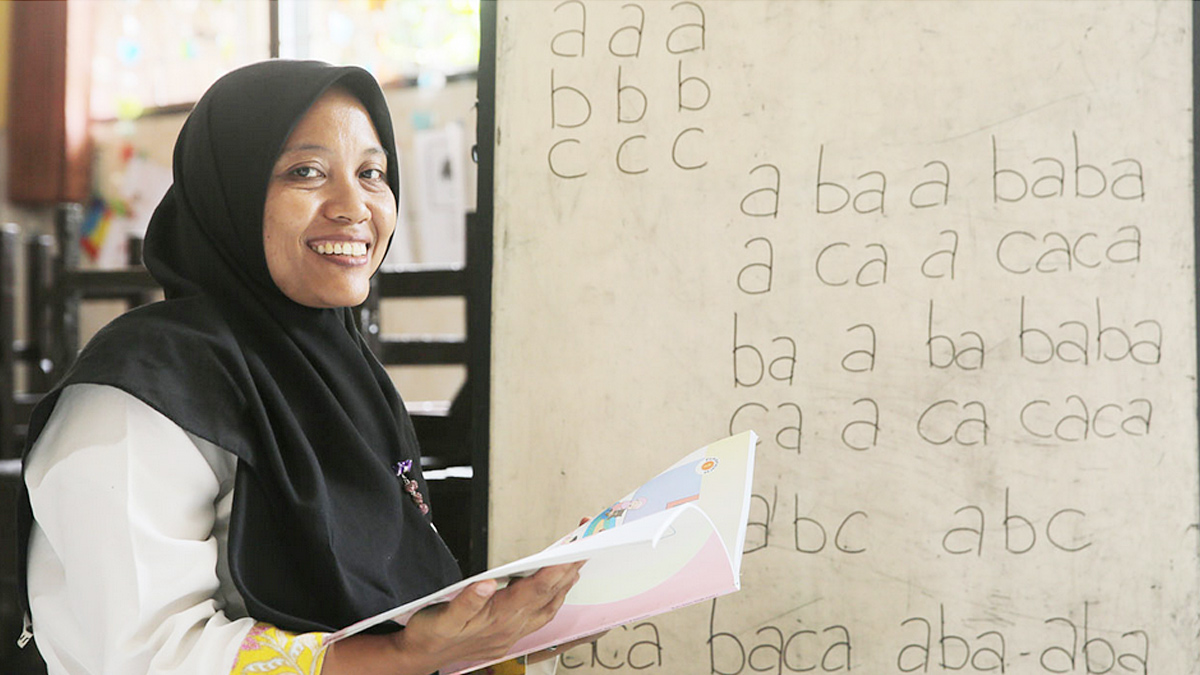 a a a
b b b
c c c
a ba a baba
a ca a caca
ba a ba baba
ca a ca caca
abc abc
baca aba-aba